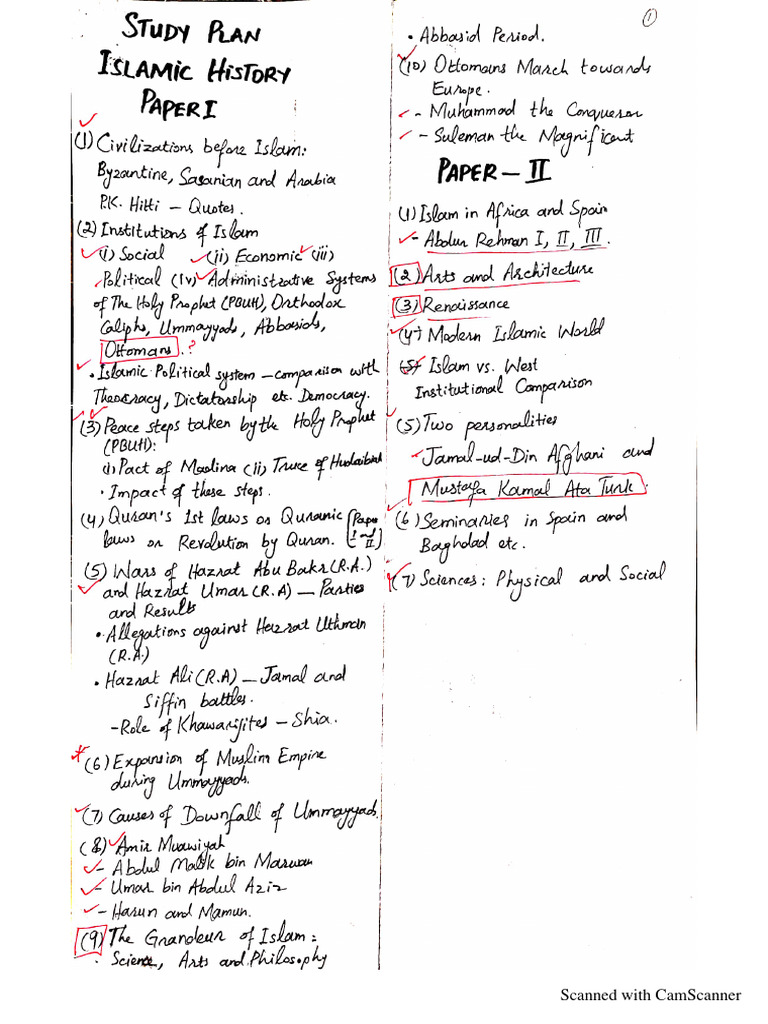 STUDY PLAN
ISLAMIC HISTORY
PAPER I
(1) Civilizations before Islam:
Byzantine, Sasanian and Arabia
P.K. Hitti – Quotes.
(2) Institutions of Islam
(i) Social (ii) Economic (iii)
Political (iv) Administrative Systems
of The Holy Prophet (PBUH), Orthodox
Caliphs, Ummayyads, Abbasids,
Ottomans.?
• Islamic Political system – comparison with
Theocracy, Dictatorship etc. Democracy.
(3) Peace steps taken by the Holy Prophet
(PBUH):
(i) Pact of Madina (ii) Truce of Hudaibiah
• Impact of these steps.
(4) Quran's 1st laws or Quranic [Paper
laws or Revolution by Quran. I and II]
(5) Wars of Hazrat Abu Bakr (R.A.)
and Hazrat Umar (R.A) – Parties
and Results
• Allegations against Hazrat Uthman
(R.A.)
• Hazrat Ali (R.A) – Jamal and
Siffin battles.
– Role of Khawarijites – Shia.
(6) Expansion of Muslim Empire
during Ummayyads.
(7) Causes of Downfall of Ummayyads.
(8) Amir Muawiyah
– Abdul Malik bin Marwan
– Umar bin Abdul Aziz
– Harun and Mamun.
(9) The Grandeur of Islam:
• Science, Arts and Philosophy
1
• Abbasid Period.
(10) Ottomans March towards
Europe.
– Muhammad the Conqueror
– Suleman the Magnificent
PAPER – II
(1) Islam in Africa and Spain
– Abdur Rehman I, II, III.
(2) Arts and Architecture
(3) Renaissance
(4) Modern Islamic World
(5) Islam vs. West
Institutional Comparison
(5) Two personalities
Jamal-ud-Din Afghani and
Mustafa Kamal Ata Turk.
(6) Seminaries in Spain and
Baghdad etc.
(7) Sciences: Physical and Social
Scanned with CamScanner